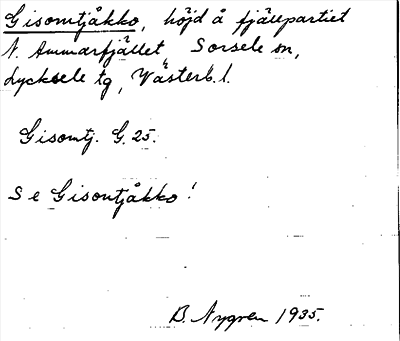 Gisomtjåkko, höjd å fjällpartiet
N. Ammarfjället Sorsele sn,
Lycksele tg, Västerb. l.
Gisomtj. G. 25.
Se Gisontjåkko!
B. Nygren 1935.